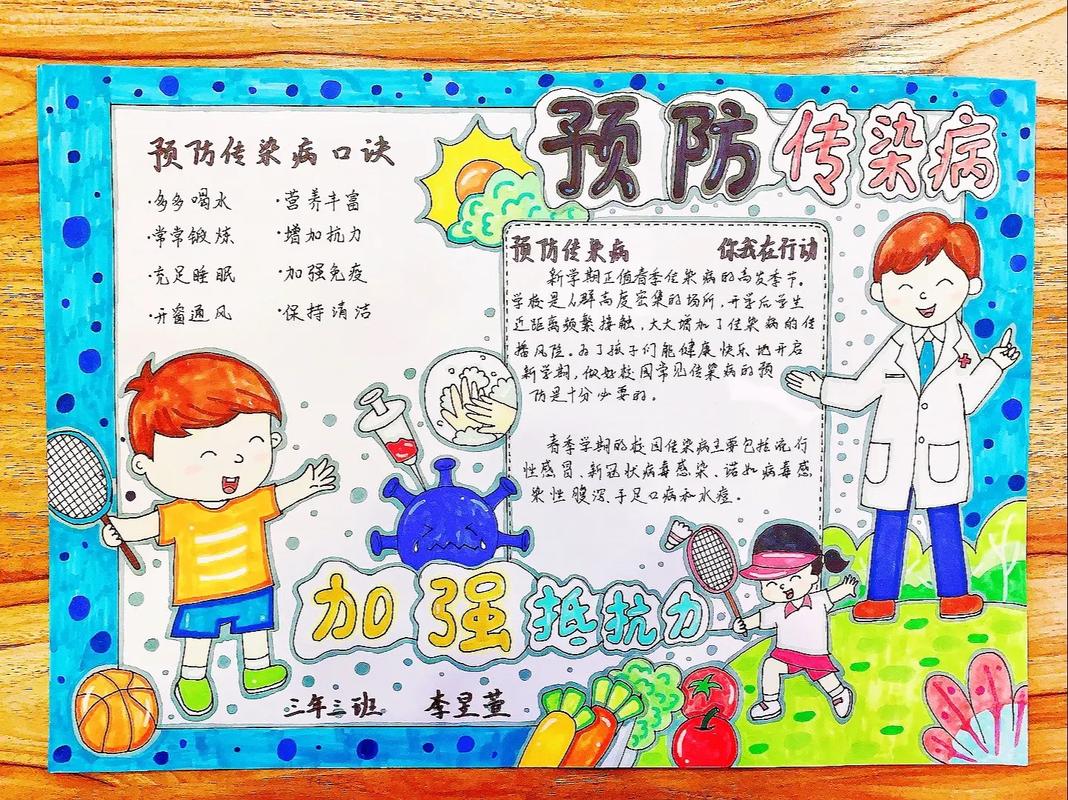 预防传染病
预防传染病口诀
·多多喝水 ·营养丰富
·常常锻炼 ·增加抗力
·充足睡眠 ·加强免疫
·开窗通风 ·保持清洁
预防传染病 你我在行动
新学期正值春季传染病的高发季节。
学校是人群高度密集的场所,开学后学生
近距离频繁接触,大大增加了传染病的传
播风险。为了孩子们能健康快乐地开启
新学期,做好校园常见传染病的预
防是十分必要的。
春季学期的校园传染病主要包括流行
性感冒、新冠状病毒感染、诺如病毒感
染性腹泻、手足口病和水痘。
加强抵抗力
三年三班 李昱萱